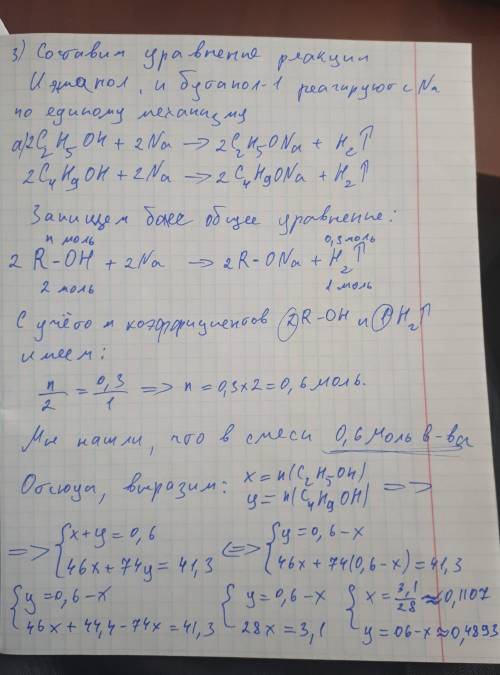 3) Составим уравнение реакции
И этанол, и бутанол-1 реагируют с Na
по единому механизму
а) 2C₂H₅OH + 2Na → 2C₂H₅ONa + H₂↑
2C₄H₉OH + 2Na → 2C₄H₉ONa + H₂↑
Запишем более общее уравнение:
n моль 0,3 моль
2 R-OH + 2Na → 2R-ONa + H₂↑
2 моль 1 моль
С учётом коэффициентов 2R-OH и 1H₂↑
имеем:
n/2 = 0,3/1 => n = 0,3x2 = 0,6 моль.
Мы нашли, что в смеси 0,6 моль в-ва
Отсюда, выразим: x = n(C₂H₅OH) y = n(C₄H₉OH) =>
=> {x+y=0,6 46x+74y=41,3 <=> {y=0,6-x 46x+74(0,6-x)=41,3
{y=0,6-x 46x+44,4-74x=41,3 {y=0,6-x 28x=3,1 {x=3,1/28≈0,1107 y=06-x≈0,4893